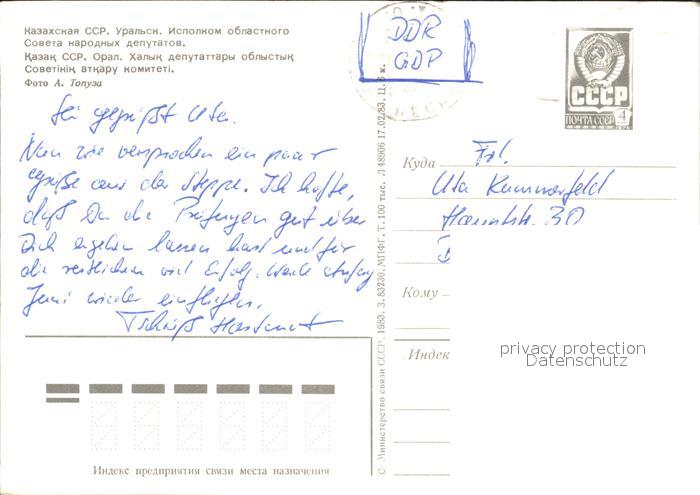 Казахская ССР. Уральск. Исполком областного
Совета народных депутатов.
Қазақ ССР. Орал. Халық депутаттары облыстық
Советінің атқару комитеті.
Фото А. Топуза
DDR
GDP
СССР
ПОЧТА СССР
4
Sei gegrüßt Uta.
Nun wie versprochen ein paar
Grüße aus der Steppe. Ich hoffe,
daß Du die Prüfungen gut über
Dich ergehen lassen hast und für
die restlichen viel Erfolg. Werde Anfang
Juni wieder einfliegen.
Tschüß Hartmut
Куда
Frl.
Uta Kummerfeld
30
Кому
Индекс
privacy protection
Datenschutz
© Министерство связи СССР. 1983. З. 83230. МПФГ. Т. 100 тыс. Л 48906 17.02.83. Ц. 6 к.
Индекс предприятия связи места назначения